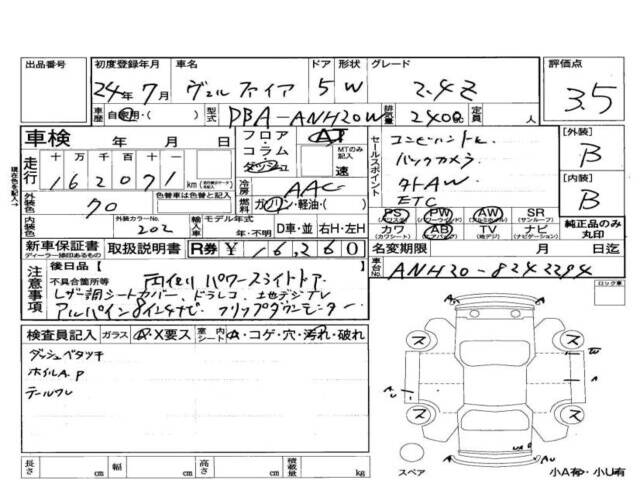 出品番号 初度登録年月 車名 ドア 形状 グレード 評価点
24年7月 ヴェルファイア 5 W 2.4Z 3.5
車歴 自家用・( ) 型式 DBA-ANH20W 排気量 2400cc 定員 人
車検 年 月 日 フロア・コラム・ダッシュ AT セールスポイント コンビハンドル [外装] B
走行 十万千百十一 MTのみ記入 速 バックカメラ
162071 km 冷房 AAC 社外AW [内装] B
外装色 70 色替車は色替と記入 燃料 ガソリン・軽油・( ) ETC
内装色 外装カラーNo. 202 輸入車 モデル年式 年・不明 D車・並 右H・左H
PS (パワステ) PW (パワーウインド) AW (アルミホイル) SR (サンルーフ) 純正品のみ丸印
カワ (カワシート) AB (エアバッグ) TV (地デジ) ナビ (ナビゲーション)
新車保証書 ディーラー捺印あるもの 取扱説明書 R券 ¥16,260 名変期限 月 日迄
注意事項 後日品 不具合箇所等 両側パワースライドドア 車台No. ANH20-8242294
レザー調シートカバー、ドラレコ、地デジTV ロック車
アルパイン8インチナビ フリップダウンモニター
検査員記入 ガラス A・X要ス 室内シート A・コゲ・穴・汚れ・破れ
ダッシュベタツキ
ホイルA.P
テールワレ
長さ cm 幅 cm 高さ cm 積載量 kg
スペア 小A有・小U有